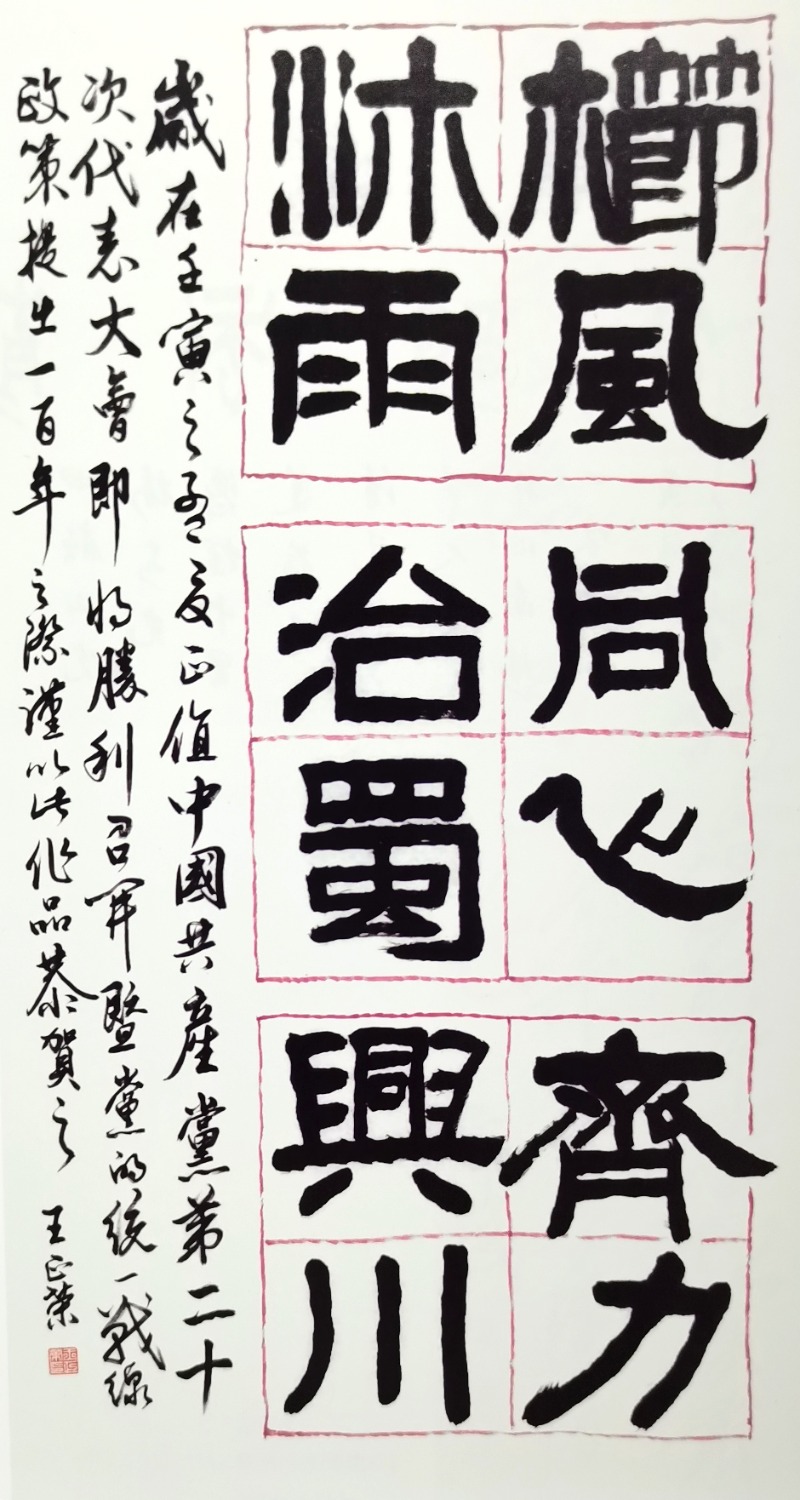 櫛風
沐雨
同心
治蜀
齊力
興川
歲在壬寅之孟夏正值中國共産黨第二十
次代表大會即将勝利召開暨黨的統一戰線
政策提出一百年之際謹以此作品恭賀之
王正榮